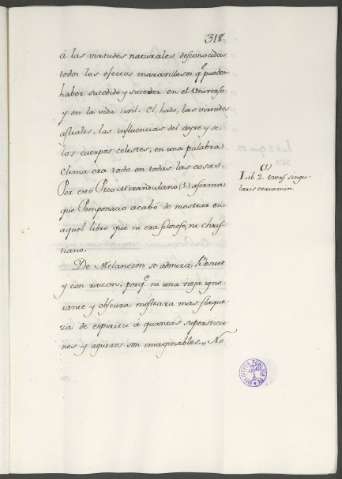 318.
á las virtudes naturales desconocidas
todos los efectos maravillosos q.e pueden
haber sucedido y suceder en el Universo
y en la vida civil. El hado, las virtudes
astrales, las influencias del ayre y de
los cuerpos celestes, en una palabra el
clima era todo en todas las cosas.
Por eso Pico Mirandulano (1) afirma
que Pomponacio acabó de mostrar en
aquel libro que ni era filosofo, ni chris-
tiano.
(1)
Lib. 2. singu-
laris certamin.
De Melancton se admira Idenet
y con razon, porq.e ni una vieja igno-
rante y obscura mostrara mas flaque-
za de espiritu á quantas supersticio-
nes y agüeros son imaginables. No